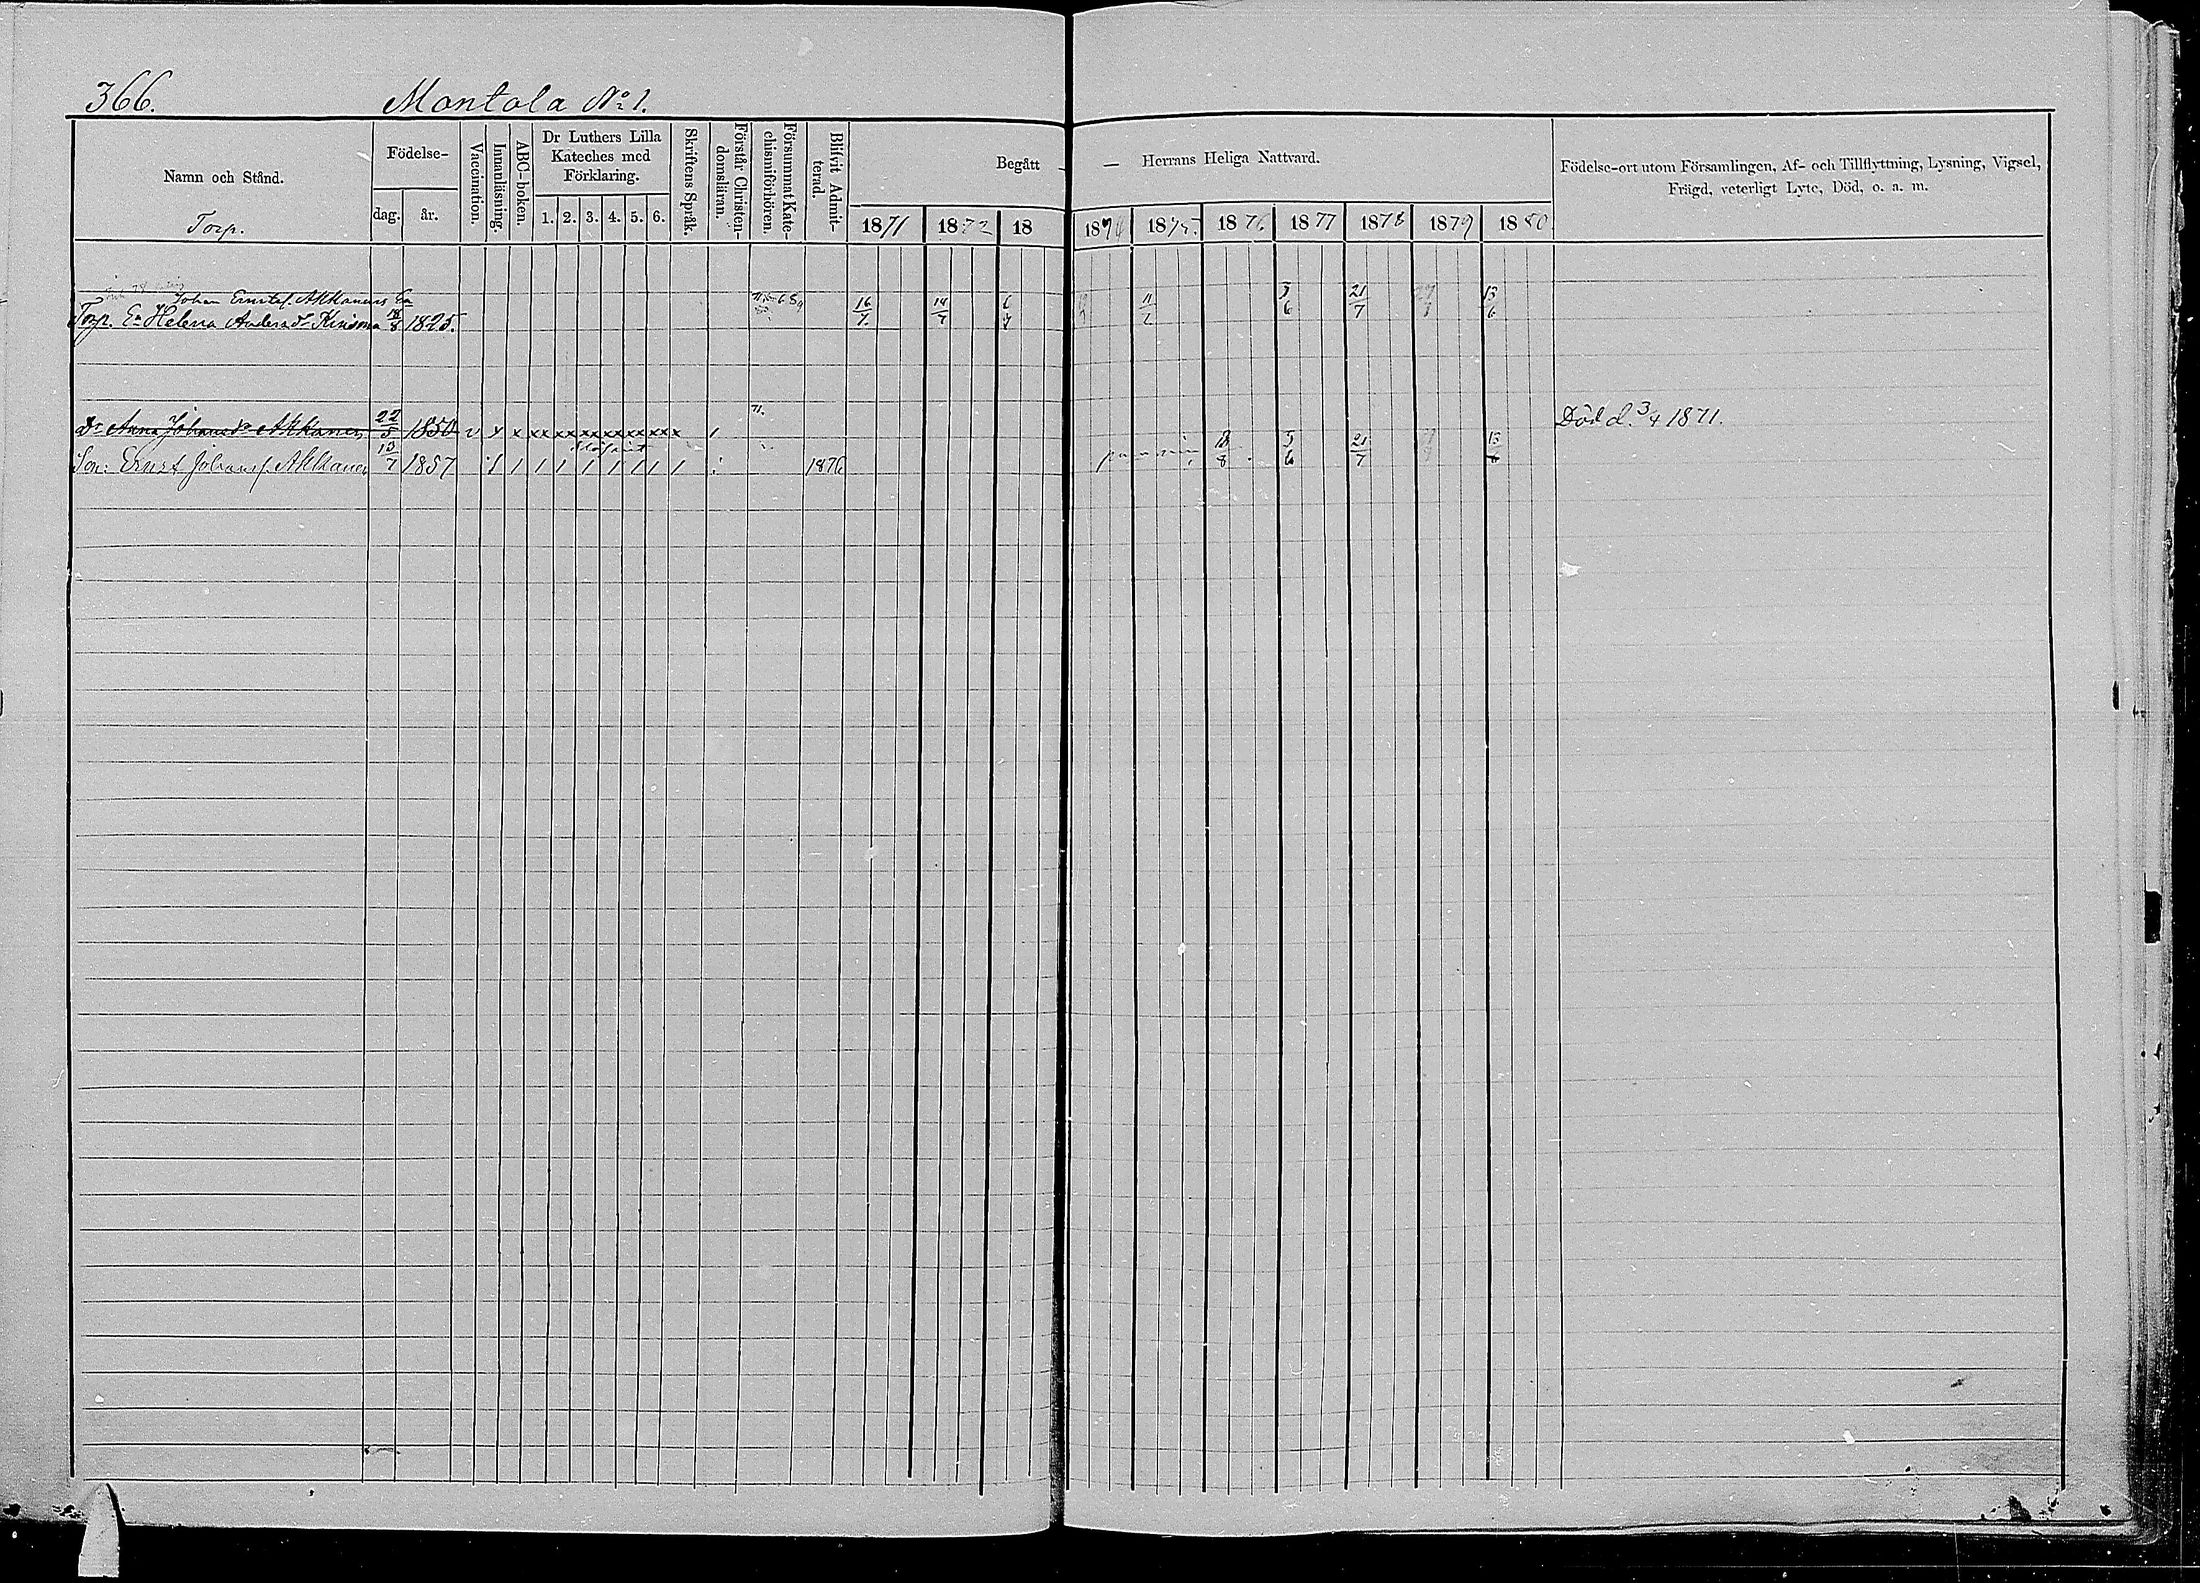 366. Montola No 1.
Namn och Stånd.
Torp.
Födelse-
dag. år.
Vaccination.
Innanläsning.
ABC-boken.
Dr Luthers Lilla
Kateches med
Förklaring.
1. 2. 3. 4. 5. 6.
Skriftens Språk.
Förstår Christen-
domsläran.
Försummat Kate-
chismiförhören.
Blifvit Admit-
terad.
Begått — Herrans Heliga Nattvard.
1871 1872 18 1874 1875. 1876. 1877 1878 1879 1880
Födelse-ort utom Församlingen, Af- och Tillflyttning, Lysning, Vigsel,
Frägd, veterligt Lyte, Död, o. a. m.
Johan Ernstsf. Akkanens Ea
Torp. Ea Helena Andersdr 18/8 1825. 16/7. 14/7 6/7 11/7 3/6 21/7 13/6
71.
Dr Anna Johansdr Akkanen 22/5 1850 v x x xx xx xx xx xx xx x 1 Död d. 3/4 1871.
Son: Ernst Johansf. Akkanen 13/7 1857 1 1 1 1 1 1 1 1 1 1876 18/8 3/6 21/7 13/6